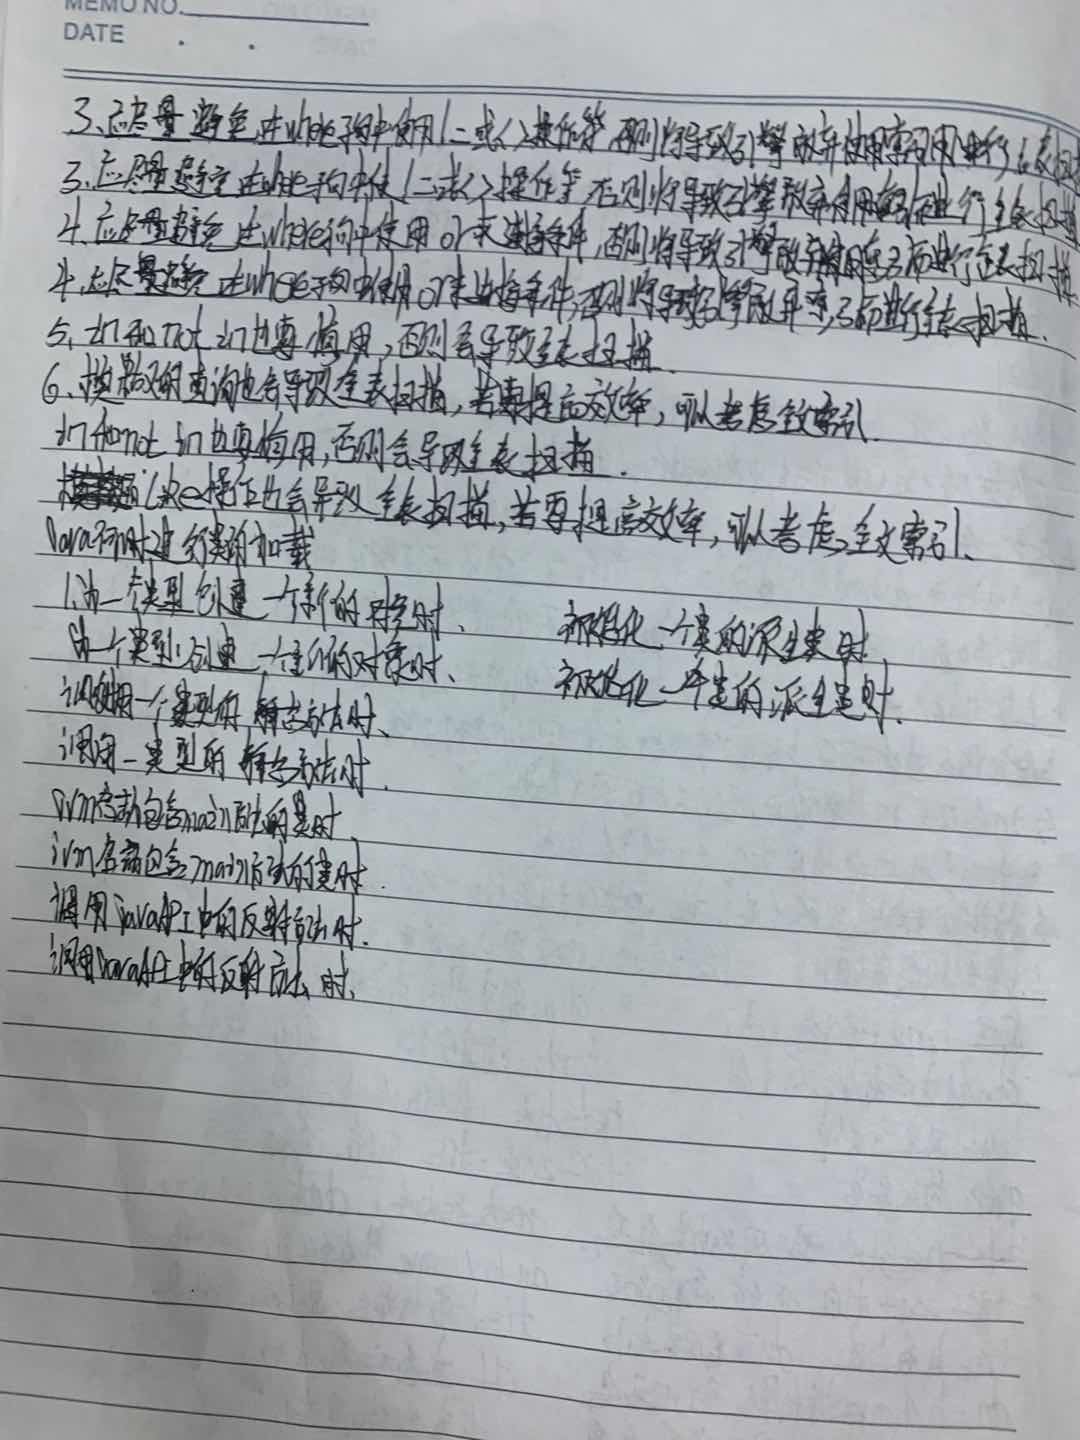 MEMO NO.
DATE . .
3、应尽量避免在where子句中使用!=或<>操作符 否则将导致引擎放弃使用索引而进行全表扫
3、应尽量避免在where子句中使!=或<>操作符 否则将导致引擎放弃使用索引进行全表扫描
4、应尽量避免在where句中使用or来连接条件,否则将导致引擎放弃使用索引而进行全表扫描
4、应尽量避免在where子句中使用or来连接条件,否则将导致引擎放弃索引而进行全表扫描.
5、in和not in也要慎用,否则会导致全表扫描.
6、模糊查询也会导致全表扫描,若要提高效率,可以考虑全文索引.
in和not in也要慎用,否则会导致全表扫描.
like操作也会导致全表扫描,若要提高效率,可以考虑全文索引、
Java何时进行类的加载
1、为一个类型创建一个新的对象时、 初始化一个类的派生类时.
为一个类型创建一个新的对象时、 初始化一个类的派生类时.
调用一个类型的静态方法时、
调用一类型的静态方法时.
jvm启动包含main方法的类时
jvm启动包含main方法的类时.
调用javaAPI中的反射方法时.
调用javaAPI中的反射方法时、